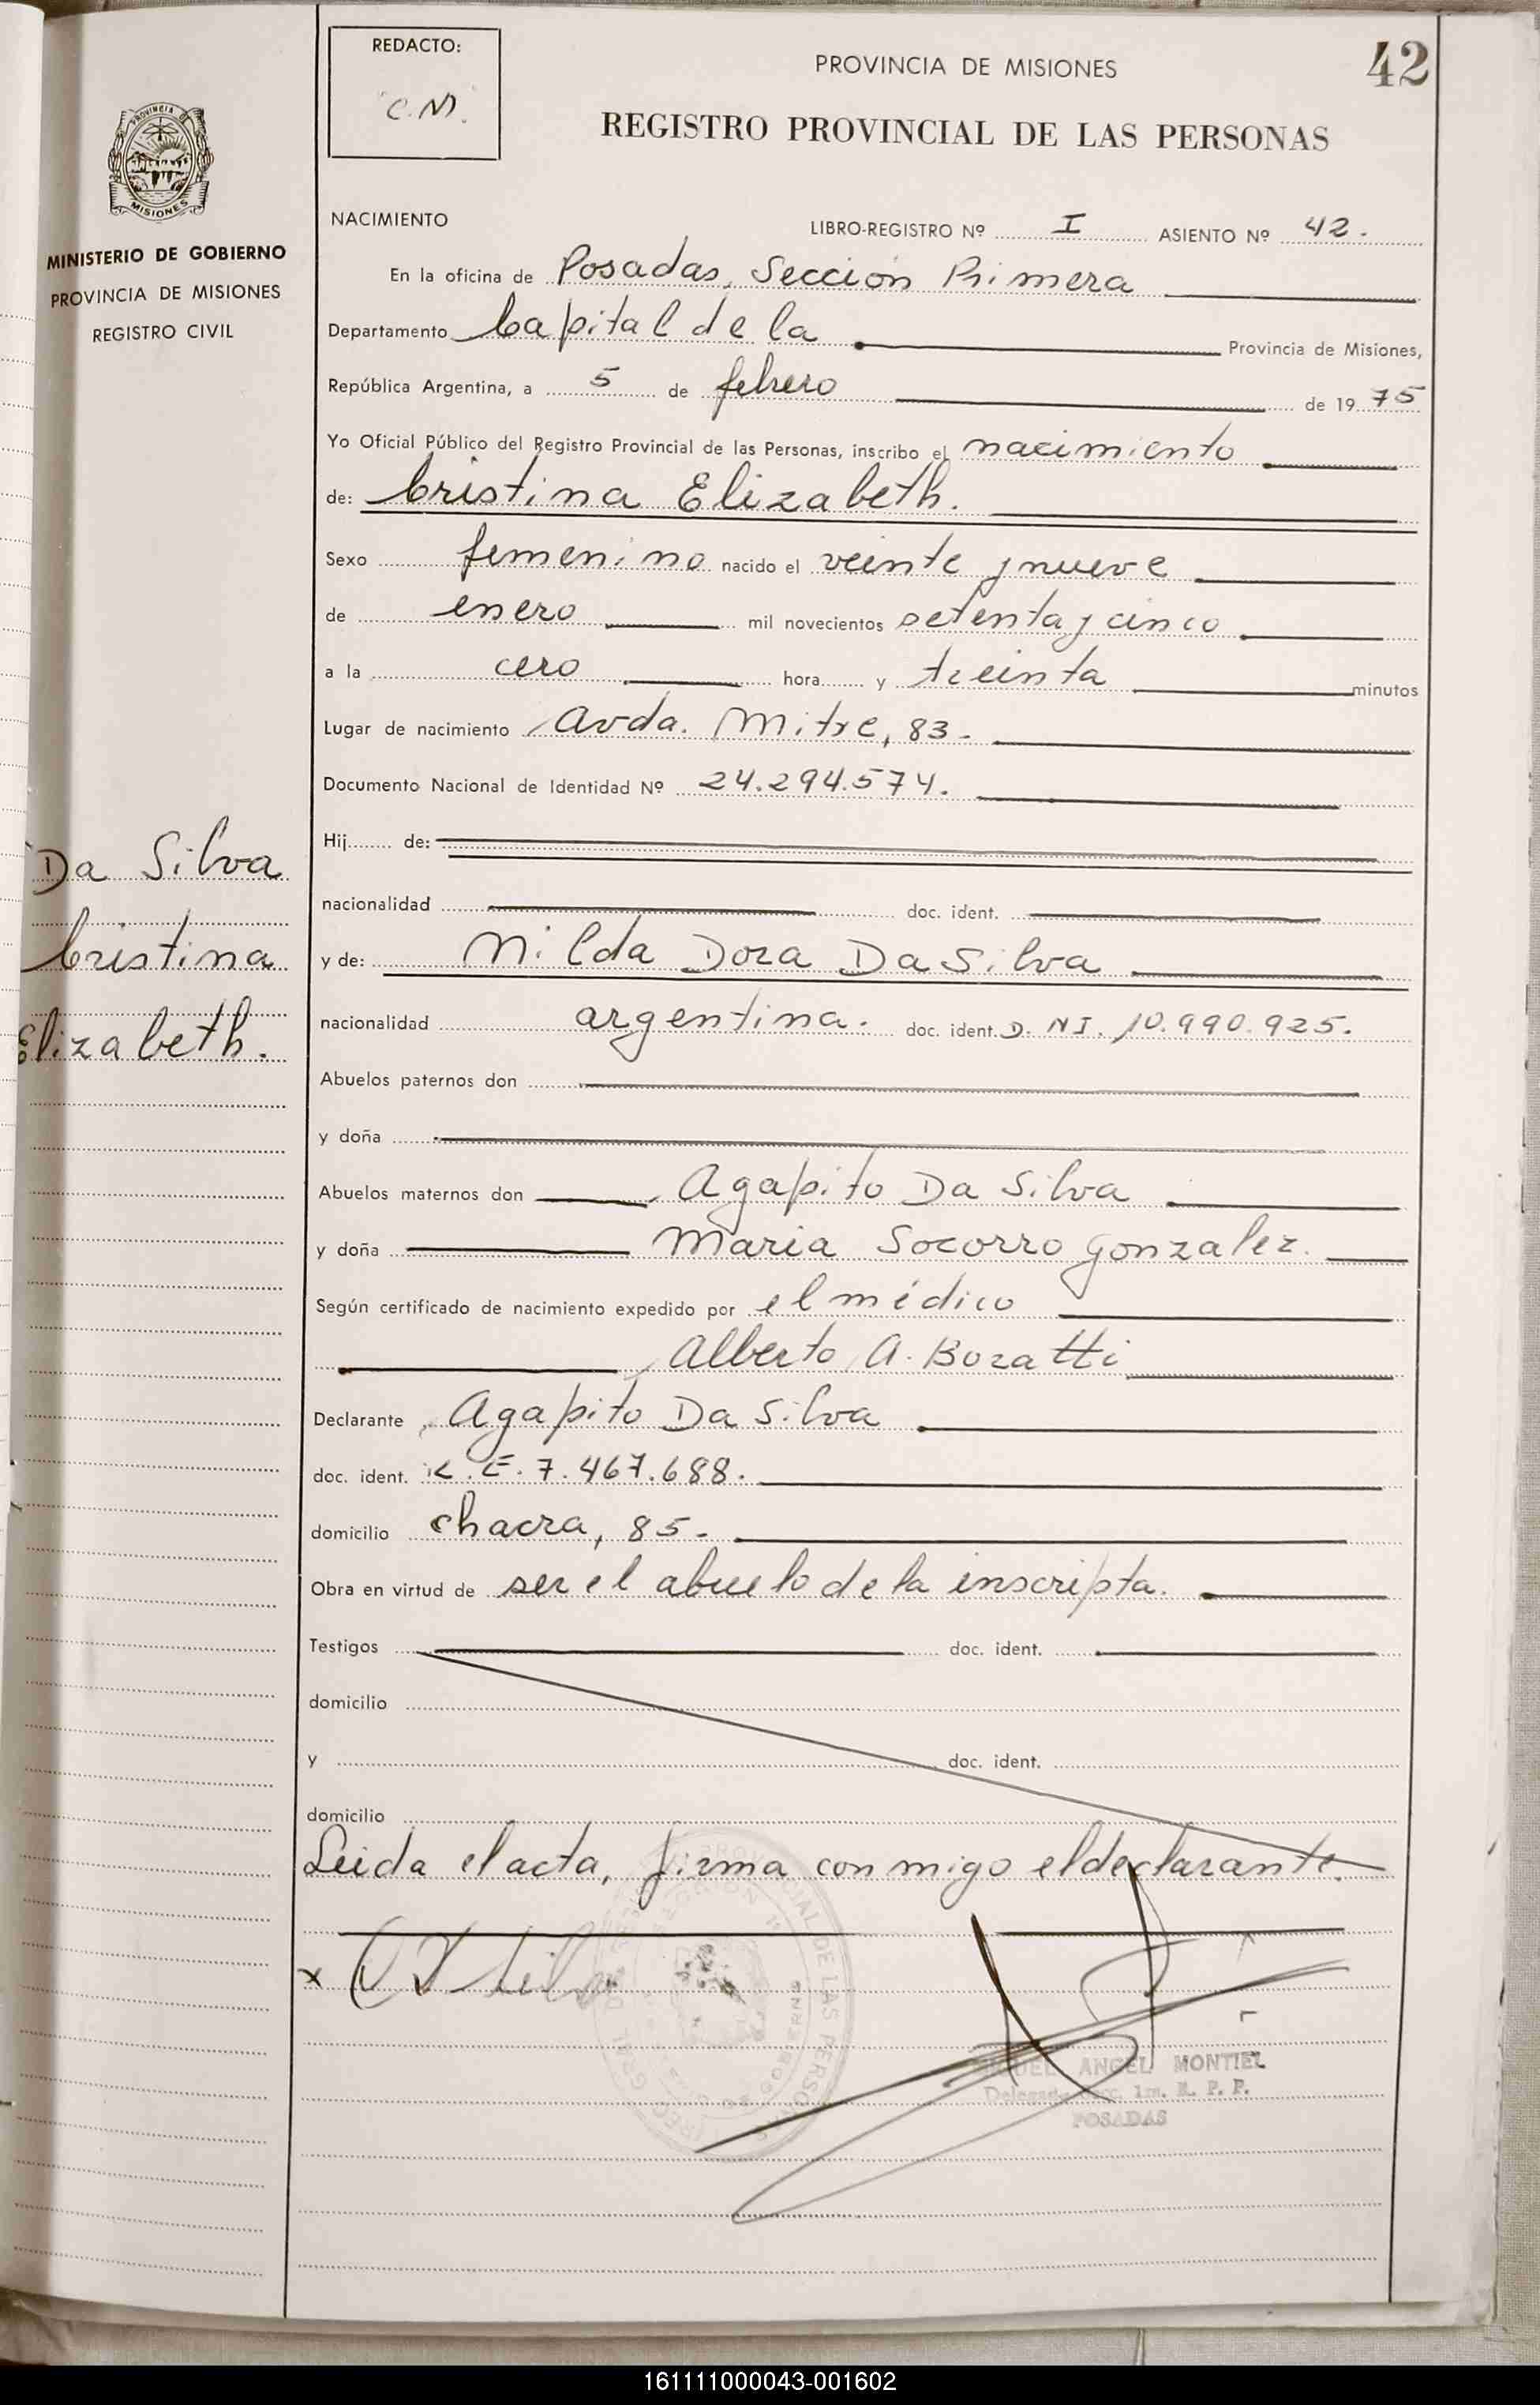 REDACTO:
C.M.
PROVINCIA DE MISIONES
42
REGISTRO PROVINCIAL DE LAS PERSONAS
PROVINCIA DE
MISIONES
MINISTERIO DE GOBIERNO
PROVINCIA DE MISIONES
REGISTRO CIVIL
NACIMIENTO LIBRO-REGISTRO Nº I ASIENTO Nº 42.
En la oficina de Posadas, Sección Primera
Departamento Capital de la Provincia de Misiones,
República Argentina, a 5 de febrero de 1975
Yo Oficial Público del Registro Provincial de las Personas, inscribo el nacimiento
de: Cristina Elizabeth.
Sexo femenino nacido el veinte y nueve
de enero mil novecientos setenta y cinco
a la cero hora y treinta minutos
Lugar de nacimiento Avda. Mitre, 83.-
Documento Nacional de Identidad Nº 24.294.574.
Hij de:
nacionalidad doc. ident.
y de: Nilda Dora Da Silva
nacionalidad argentina. doc. ident. D.NI. 10.990.925.
Abuelos paternos don
y doña
Abuelos maternos don Agapito Da Silva
y doña Maria Socorro Gonzalez.
Según certificado de nacimiento expedido por el médico
Alberto A. Bozatti
Declarante Agapito Da Silva
doc. ident. L.E. 7.467.688.
domicilio chacra, 85.-
Obra en virtud de ser el abuelo de la inscripta.
Testigos doc. ident.
domicilio
y doc. ident.
domicilio
Leida el acta, firma conmigo el declarante.
Da Silva
Cristina
Elizabeth.
x
MIGUEL ANGEL MONTIEL
Delegado Secc. 1ra. R. P. P.
POSADAS
161111000043-001602